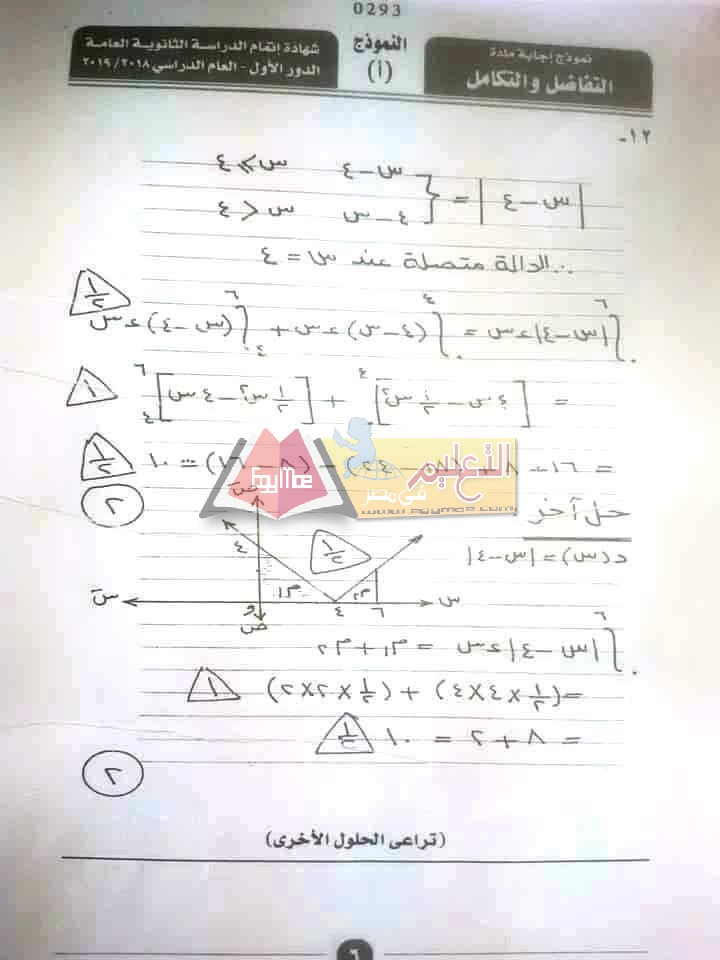 0293
نموذج إجابة مادة
التفاضل والتكامل
النموذج
(أ)
شهادة إتمام الدراسة الثانوية العامة
الدور الأول - العام الدراسي ٢٠١٨ / ٢٠١٩
١٢-
|س - ٤| = { س - ٤ س ≥ ٤
٤ - س س < ٤
∴ الدالة متصلة عند س = ٤
∫٠^٦ |س - ٤| ءس = ∫٠^٤ (٤ - س) ءس + ∫٤^٦ (س - ٤) ءس ١/٢
= [٤س - ١/٢ س٢]٠^٤ + [١/٢ س٢ - ٤س]٤^٦ ١
= ١٦ - ٨ + (١٨ - ٢٤) - (٨ - ١٦) = ١٠ ١/٢
٢
التعليم
فى مصر
EgyMoe
www.egymoe.com
حل آخر
د(س) = |س - ٤|
صَ
٤
١/٢
م١
م٢
سَ
و
٤
٦
س
ص
∫٠^٦ |س - ٤| ءس = م١ + م٢
= (١/٢ × ٤ × ٤) + (١/٢ × ٢ × ٢) ١
= ٨ + ٢ = ١٠ ١/٢
٢
(تراعى الحلول الأخرى)
٦